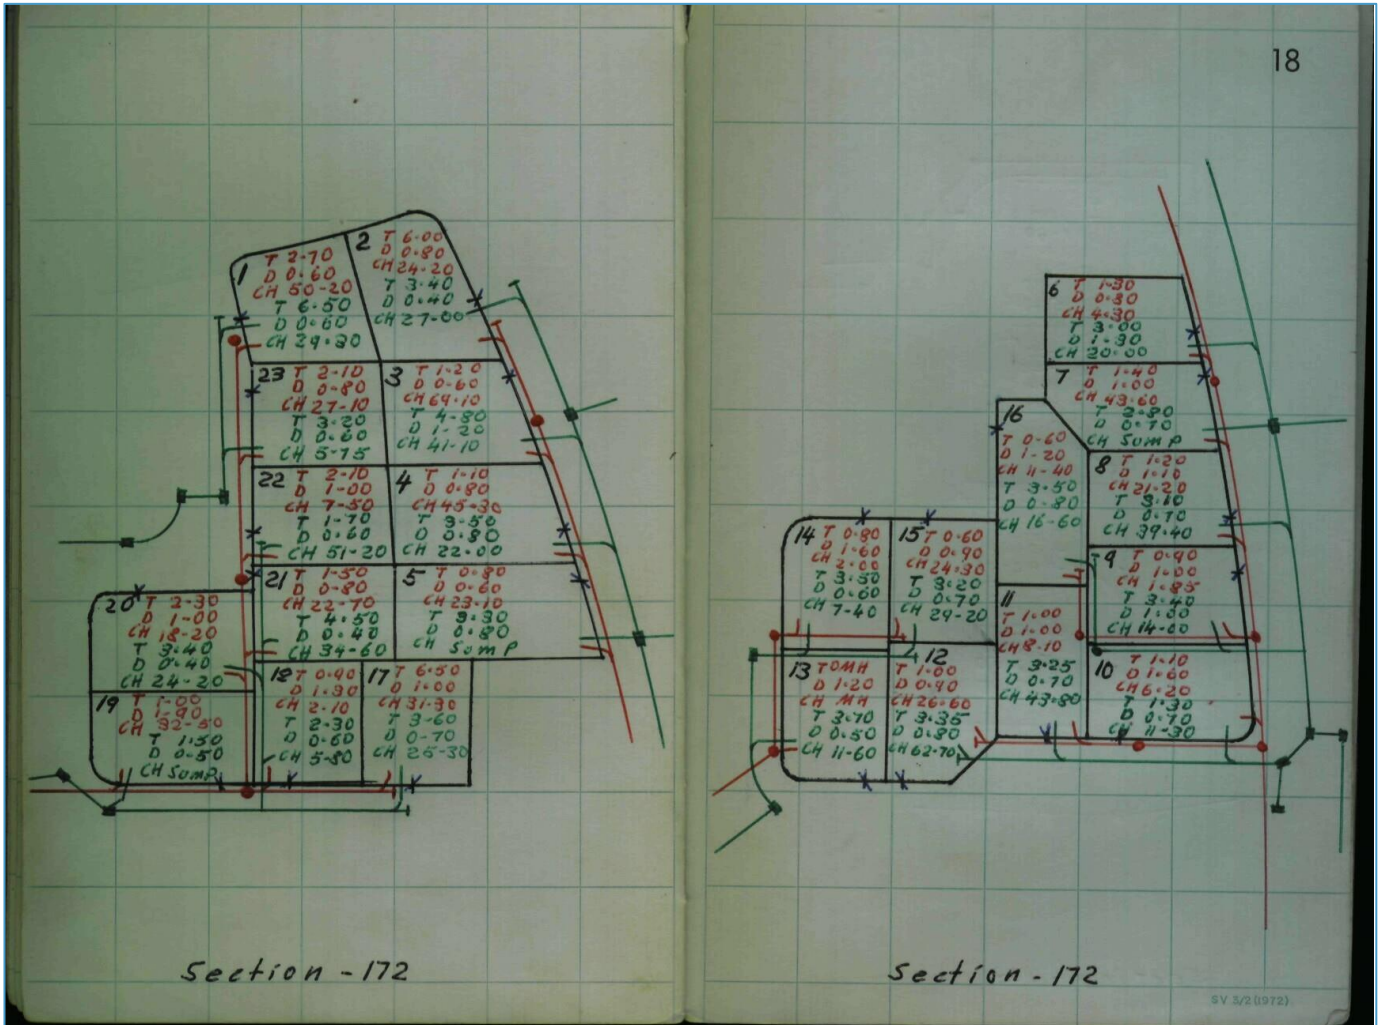 18
1
T 2-70
D 0-60
CH 50-20
T 6-50
D 0-60
CH 29-30
2
T 6-00
D 0-80
CH 24-20
T 3-40
D 0-40
CH 27-00
23
T 2-10
D 0-80
CH 27-10
T 3-20
D 0-60
CH 5-75
3
T 1-20
D 0-60
CH 69-10
T 4-80
D 1-20
CH 41-10
22
T 2-10
D 1-00
CH 7-50
T 1-70
D 0-60
CH 51-20
4
T 1-10
D 0-80
CH 45-30
T 3-50
D 0-80
CH 22-00
21
T 1-50
D 0-80
CH 22-70
T 4-50
D 0-40
CH 34-60
5
T 0-80
D 0-60
CH 23-10
T 3-30
D 0-80
CH Sump
20
T 2-30
D 1-00
CH 18-20
T 3-40
D 0-40
CH 24-20
19
T 1-00
D 1-90
CH 32-50
T 1-50
D 0-50
CH Sump
18
T 0-90
D 1-30
CH 2-10
T 2-30
D 0-60
CH 5-80
17
T 6-50
D 1-00
CH 31-30
T 3-60
D 0-70
CH 25-30
Section - 172
6
T 1-30
D 0-80
CH 4-30
T 3-00
D 1-30
CH 20-00
7
T 1-40
D 1-00
CH 43-60
T 2-80
D 0-70
CH Sump
16
T 0-60
D 1-20
CH 4-40
T 3-50
D 0-80
CH 16-60
8
T 1-20
D 1-10
CH 21-20
T 3-10
D 0-70
CH 39-40
14
T 0-80
D 1-60
CH 2-00
T 3-50
D 0-60
CH 7-40
15
T 0-60
D 0-90
CH 24-30
T 3-20
D 0-70
CH 29-20
9
T 0-90
D 1-00
CH 1-85
T 3-40
D 1-00
CH 14-00
11
T 1-00
D 1-00
CH 8-10
T 3-25
D 0-70
CH 43-80
13
TOMH
D 1-20
CH MH
T 3-70
D 0-50
CH 11-60
12
T 1-00
D 0-90
CH 26-60
T 3-35
D 0-80
CH 62-70
10
T 1-10
D 1-60
CH 6-20
T 1-30
D 0-70
CH 11-30
Section - 172
SV 3/2 (1972)